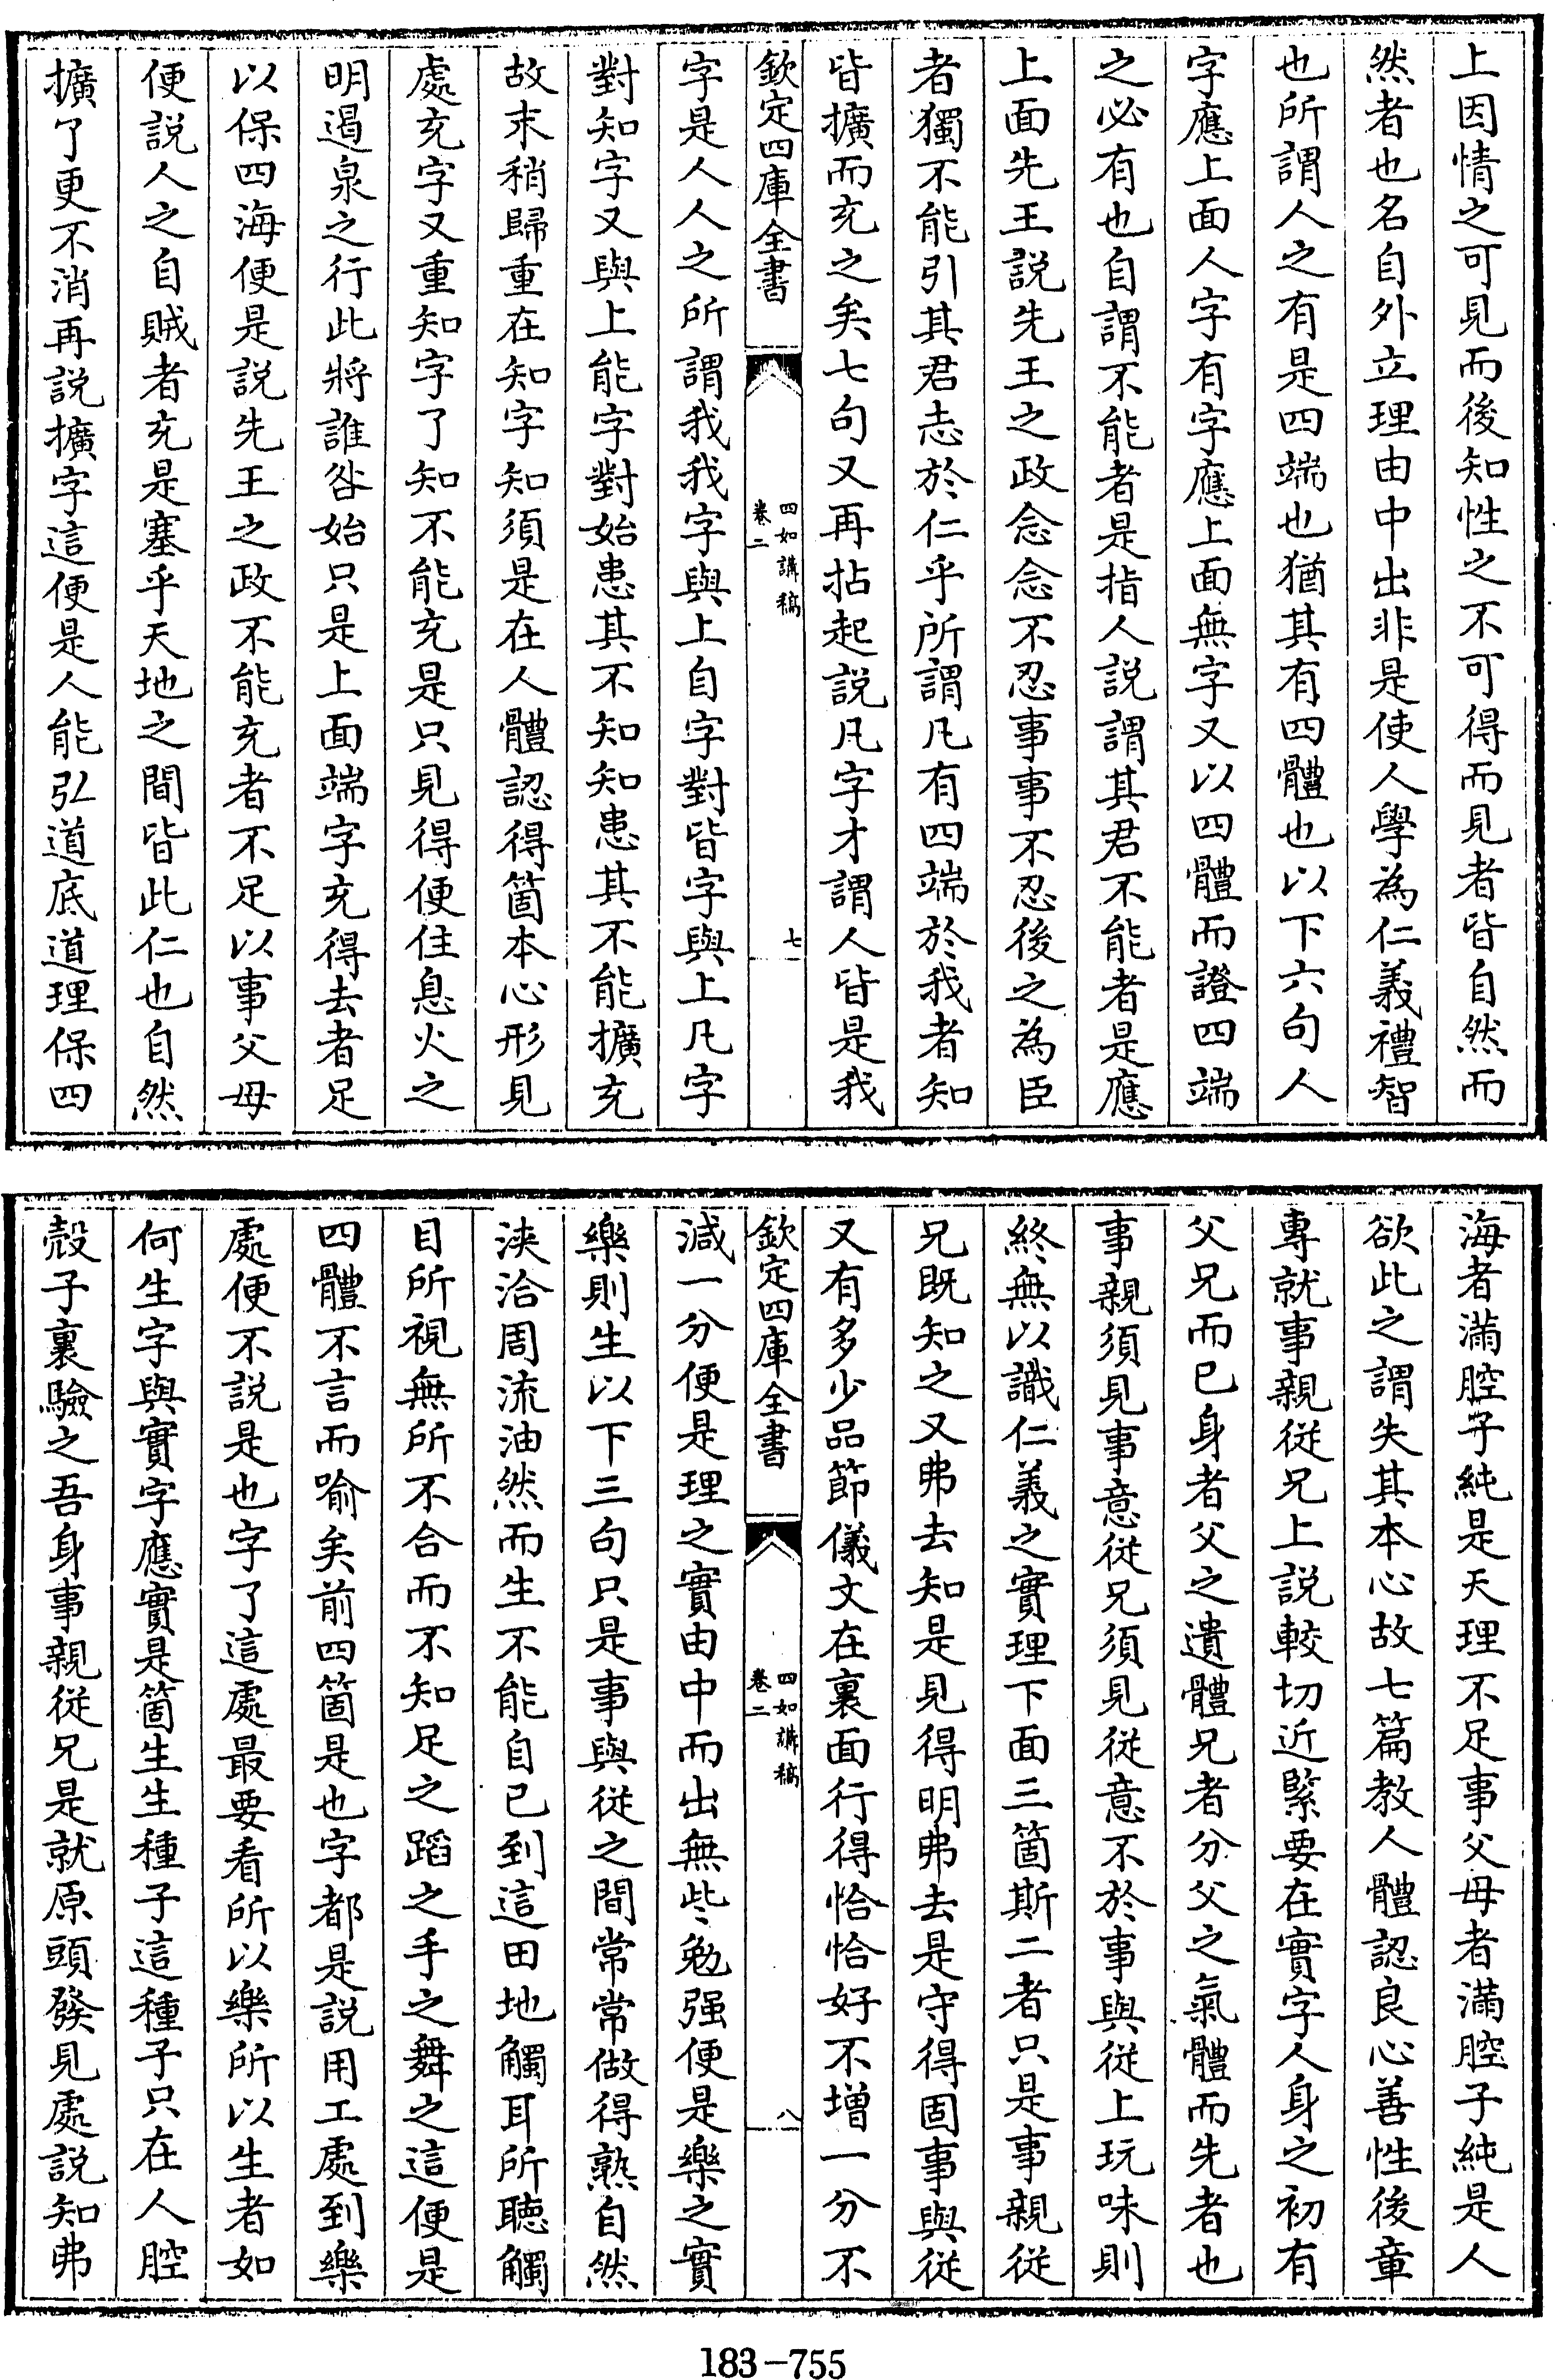 上因情之可見而後知性之不可得而見者皆自然而
然者也名自外立理由中出非是使人學為仁義禮智
也所謂人之有是四端也猶其有四體也以下六句人
字應上面人字有字應上面無字又以四體而證四端
之必有也自謂不能者是指人説謂其君不能者是應
上面先王説先王之政念念不忍事事不忍後之為臣
者獨不能引其君志於仁乎所謂凡有四端於我者知
皆擴而充之矣七句又再拈起説凡字才謂人皆是我
欽定四庫全書
四如講稿
卷二
七
字是人人之所謂我我字與上自字對皆字與上凡字
對知字又與上能字對始患其不知知患其不能擴充
故末稍歸重在知字知須是在人體認得箇本心形見
處充字又重知字了知不能充是只見得便住息火之
明遏泉之行此將誰咎始只是上面端字充得去者足
以保四海便是説先王之政不能充者不足以事父母
便説人之自賊者充是塞乎天地之間皆此仁也自然
擴了更不消再説擴字這便是人能弘道底道理保四
海者滿腔子純是天理不足事父母者滿腔子純是人
欲此之謂失其本心故七篇教人體認良心善性後章
專就事親從兄上説較切近緊要在實字人身之初有
父兄而已身者父之遺體兄者分父之氣體而先者也
事親須見事意從兄須見從意不於事與從上玩味則
終無以識仁義之實理下面三箇斯二者只是事親從
兄既知之又弗去知是見得明弗去是守得固事與從
又有多少品節儀文在裏面行得恰恰好不增一分不
欽定四庫全書
四如講稿
卷二
八
減一分便是理之實由中而出無些勉强便是樂之實
樂則生以下三句只是事與從之間常常做得熟自然
浹洽周流油然而生不能自已到這田地觸耳所聽觸
目所視無所不合而不知足之蹈之手之舞之這便是
四體不言而喻矣前四箇是也字都是説用工處到樂
處便不説是也字了這處最要看所以樂所以生者如
何生字與實字應實是箇生生種子這種子只在人腔
殼子裏驗之吾身事親從兄是就原頭發見處説知弗
183-755